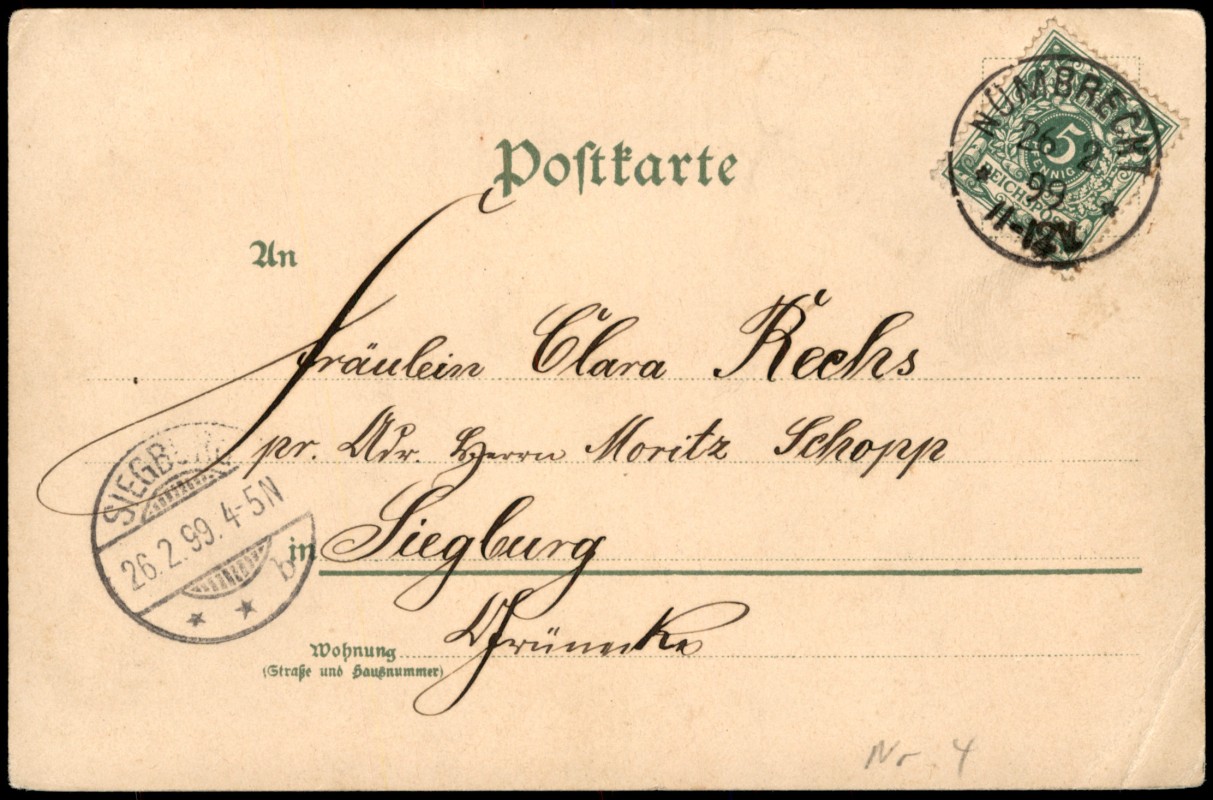 Postkarte
NÜMBRECHT
26 2
99
11-12N
* *
5
PFENNIG
REICHSPO
An
Fräulein Clara Rechs
pr. Adr. Herrn Moritz Schopp
in Siegburg
SIEGBURG
26.2.99.4-5N
b
* *
Wohnung
(Straße und Hausnummer)
Nr. 4